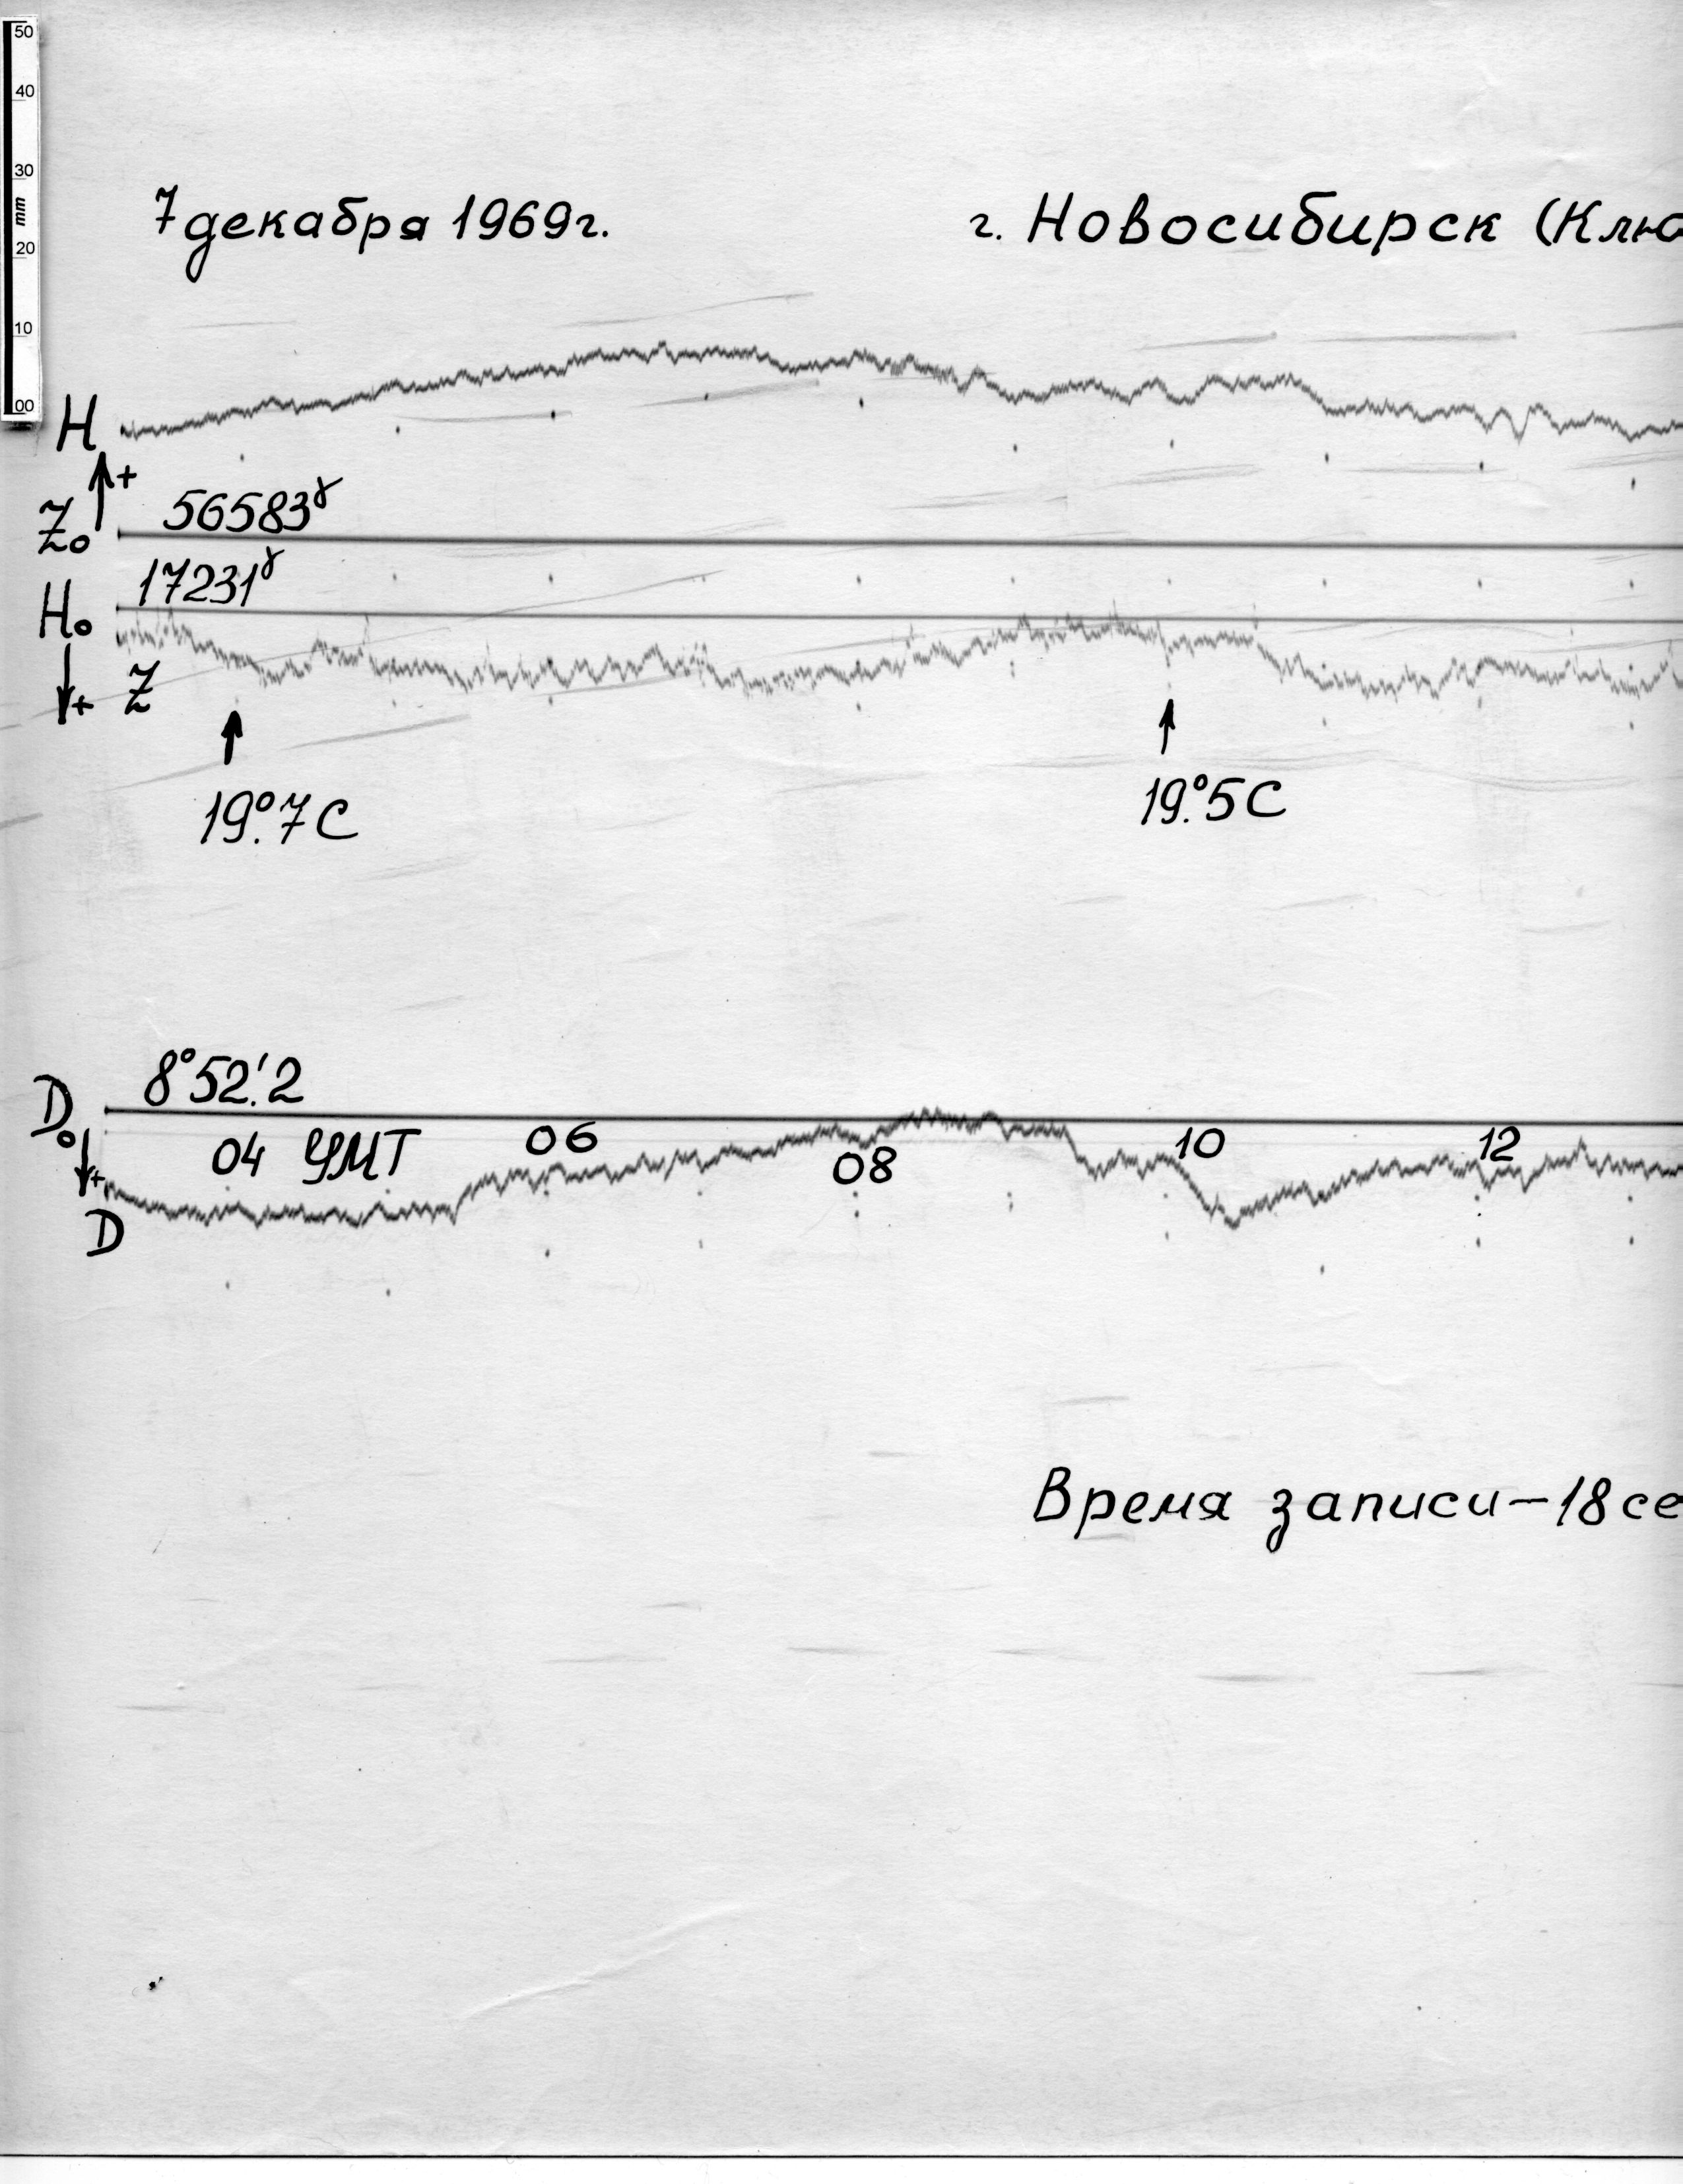 50
40
30
mm
20
10
00
7 декабря 1969г.
г. Новосибирск (Клю
H
+
Z₀ 56583γ
H₀ 17231γ
+ Z
19°.7 C
19°.5 C
D₀ 8°52'.2
04 УМТ 06 08 10 12
+
D
Время записи – 18 се